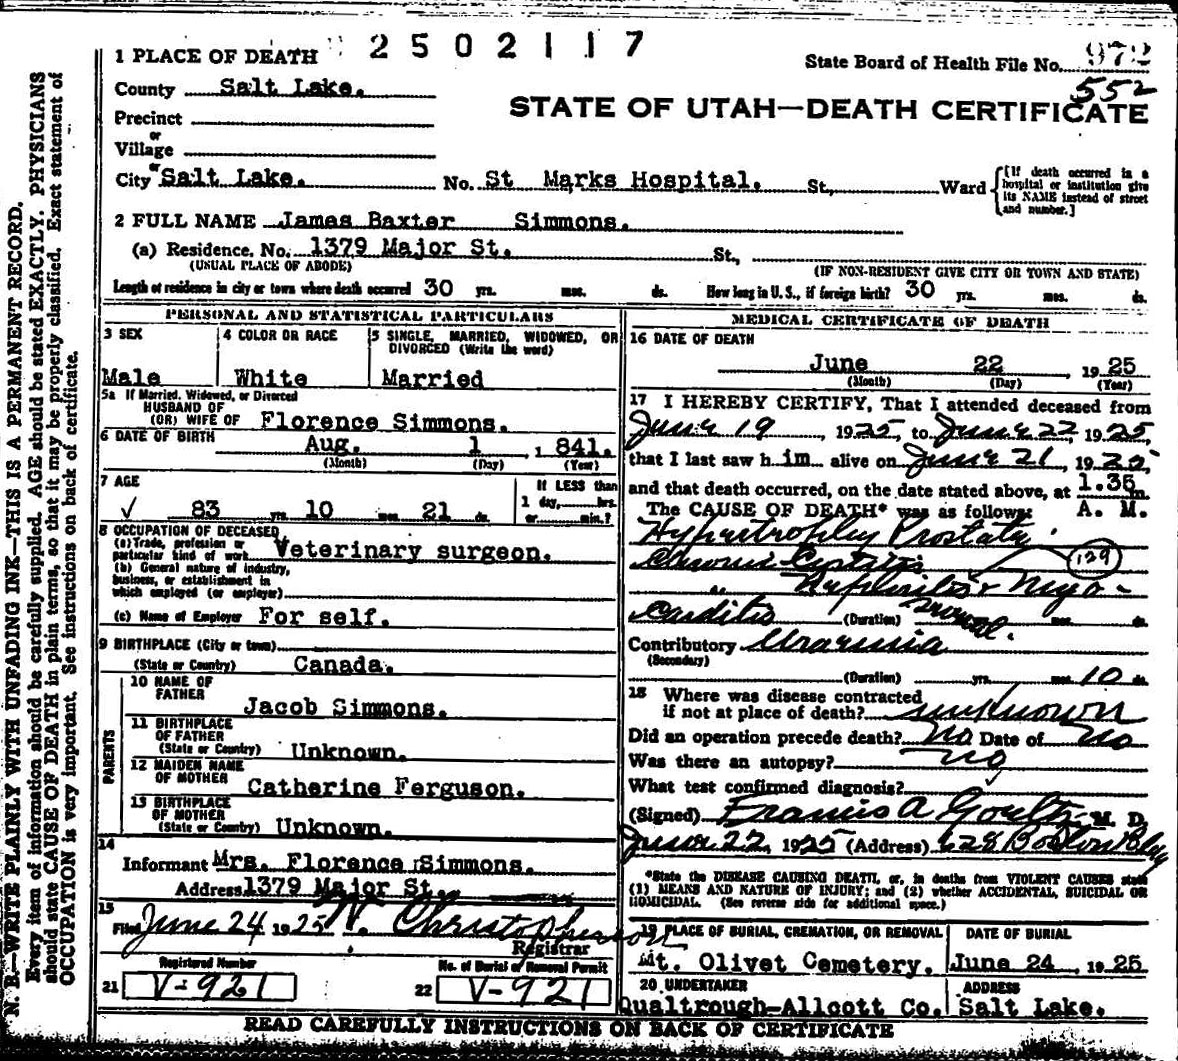 N. B.—WRITE PLAINLY WITH UNFADING INK—THIS IS A PERMANENT RECORD.
Every item of information should be carefully supplied. AGE should be stated EXACTLY. PHYSICIANS
should state CAUSE OF DEATH in plain terms, so that it may be properly classified. Exact statement of
OCCUPATION is very important. See instructions on back of certificate.
2502117
1 PLACE OF DEATH
State Board of Health File No. 972
552
County Salt Lake.
STATE OF UTAH—DEATH CERTIFICATE
Precinct
or
Village
or
City Salt Lake. No. St Marks Hospital. St., Ward
[If death occurred in a hospital or institution give its NAME instead of street and number.]
2 FULL NAME James Baxter Simmons.
(a) Residence. No. 1379 Major St. St.,
(USUAL PLACE OF ABODE) (IF NON-RESIDENT GIVE CITY OR TOWN AND STATE)
Length of residence in city or town where death occurred 30 yrs. mos. ds. How long in U. S., if foreign birth? 30 yrs. mos. ds.
PERSONAL AND STATISTICAL PARTICULARS
3 SEX
Male
4 COLOR OR RACE
White
5 SINGLE, MARRIED, WIDOWED, OR
DIVORCED (Write the word)
Married
5a If Married, Widowed, or Divorced
HUSBAND OF
(OR) WIFE OF Florence Simmons.
6 DATE OF BIRTH Aug. 1 , 1 841.
(Month) (Day) (Year)
7 AGE
83 yrs 10 mos 21 ds.
If LESS than
1 day, hrs.
or min.?
8 OCCUPATION OF DECEASED
(a) Trade, profession or
particular kind of work Veterinary surgeon.
(b) General nature of industry,
business, or establishment in
which employed (or employer)
(c) Name of Employer For self.
9 BIRTHPLACE (City or town)
(State or Country) Canada.
PARENTS
10 NAME OF
FATHER
Jacob Simmons.
11 BIRTHPLACE
OF FATHER
(State or Country) Unknown.
12 MAIDEN NAME
OF MOTHER
Catherine Ferguson.
13 BIRTHPLACE
OF MOTHER
(State or Country) Unknown.
14
Informant Mrs. Florence Simmons.
Address 1379 Major St.
15
Filed June 24 1925 N. Christopherson
Registrar
Registered Number
21 V-921
No. of Burial or Removal Permit
22 V-921
MEDICAL CERTIFICATE OF DEATH
16 DATE OF DEATH
June 22 1925
(Month) (Day) (Year)
17 I HEREBY CERTIFY, That I attended deceased from
June 19, 1925, to June 22, 1925,
that I last saw him alive on June 21, 1925,
and that death occurred, on the date stated above, at 1.35 m.
The CAUSE OF DEATH* was as follows: A. M.
Hypertrophy Prostate
Chronic Cystitis
129
" Nephritis & Myo-
carditis (Duration) several mos. ds.
Contributory Uraemia
(Secondary)
(Duration) yrs. mos. 10 ds.
18 Where was disease contracted
if not at place of death? unknown
Did an operation precede death? No Date of No
Was there an autopsy? No
What test confirmed diagnosis?
(Signed) Francis A Goeltz M. D.
June 22, 1925 (Address) 628 Boston Bldg
*State the DISEASE CAUSING DEATH, or, in deaths from VIOLENT CAUSES state
(1) MEANS AND NATURE OF INJURY; and (2) whether ACCIDENTAL, SUICIDAL OR
HOMICIDAL. (See reverse side for additional space.)
19 PLACE OF BURIAL, CREMATION, OR REMOVAL
Mt. Olivet Cemetery.
DATE OF BURIAL
June 24, 1925
20 UNDERTAKER
Qualtrough-Allcott Co.
ADDRESS
Salt Lake.
READ CAREFULLY INSTRUCTIONS ON BACK OF CERTIFICATE